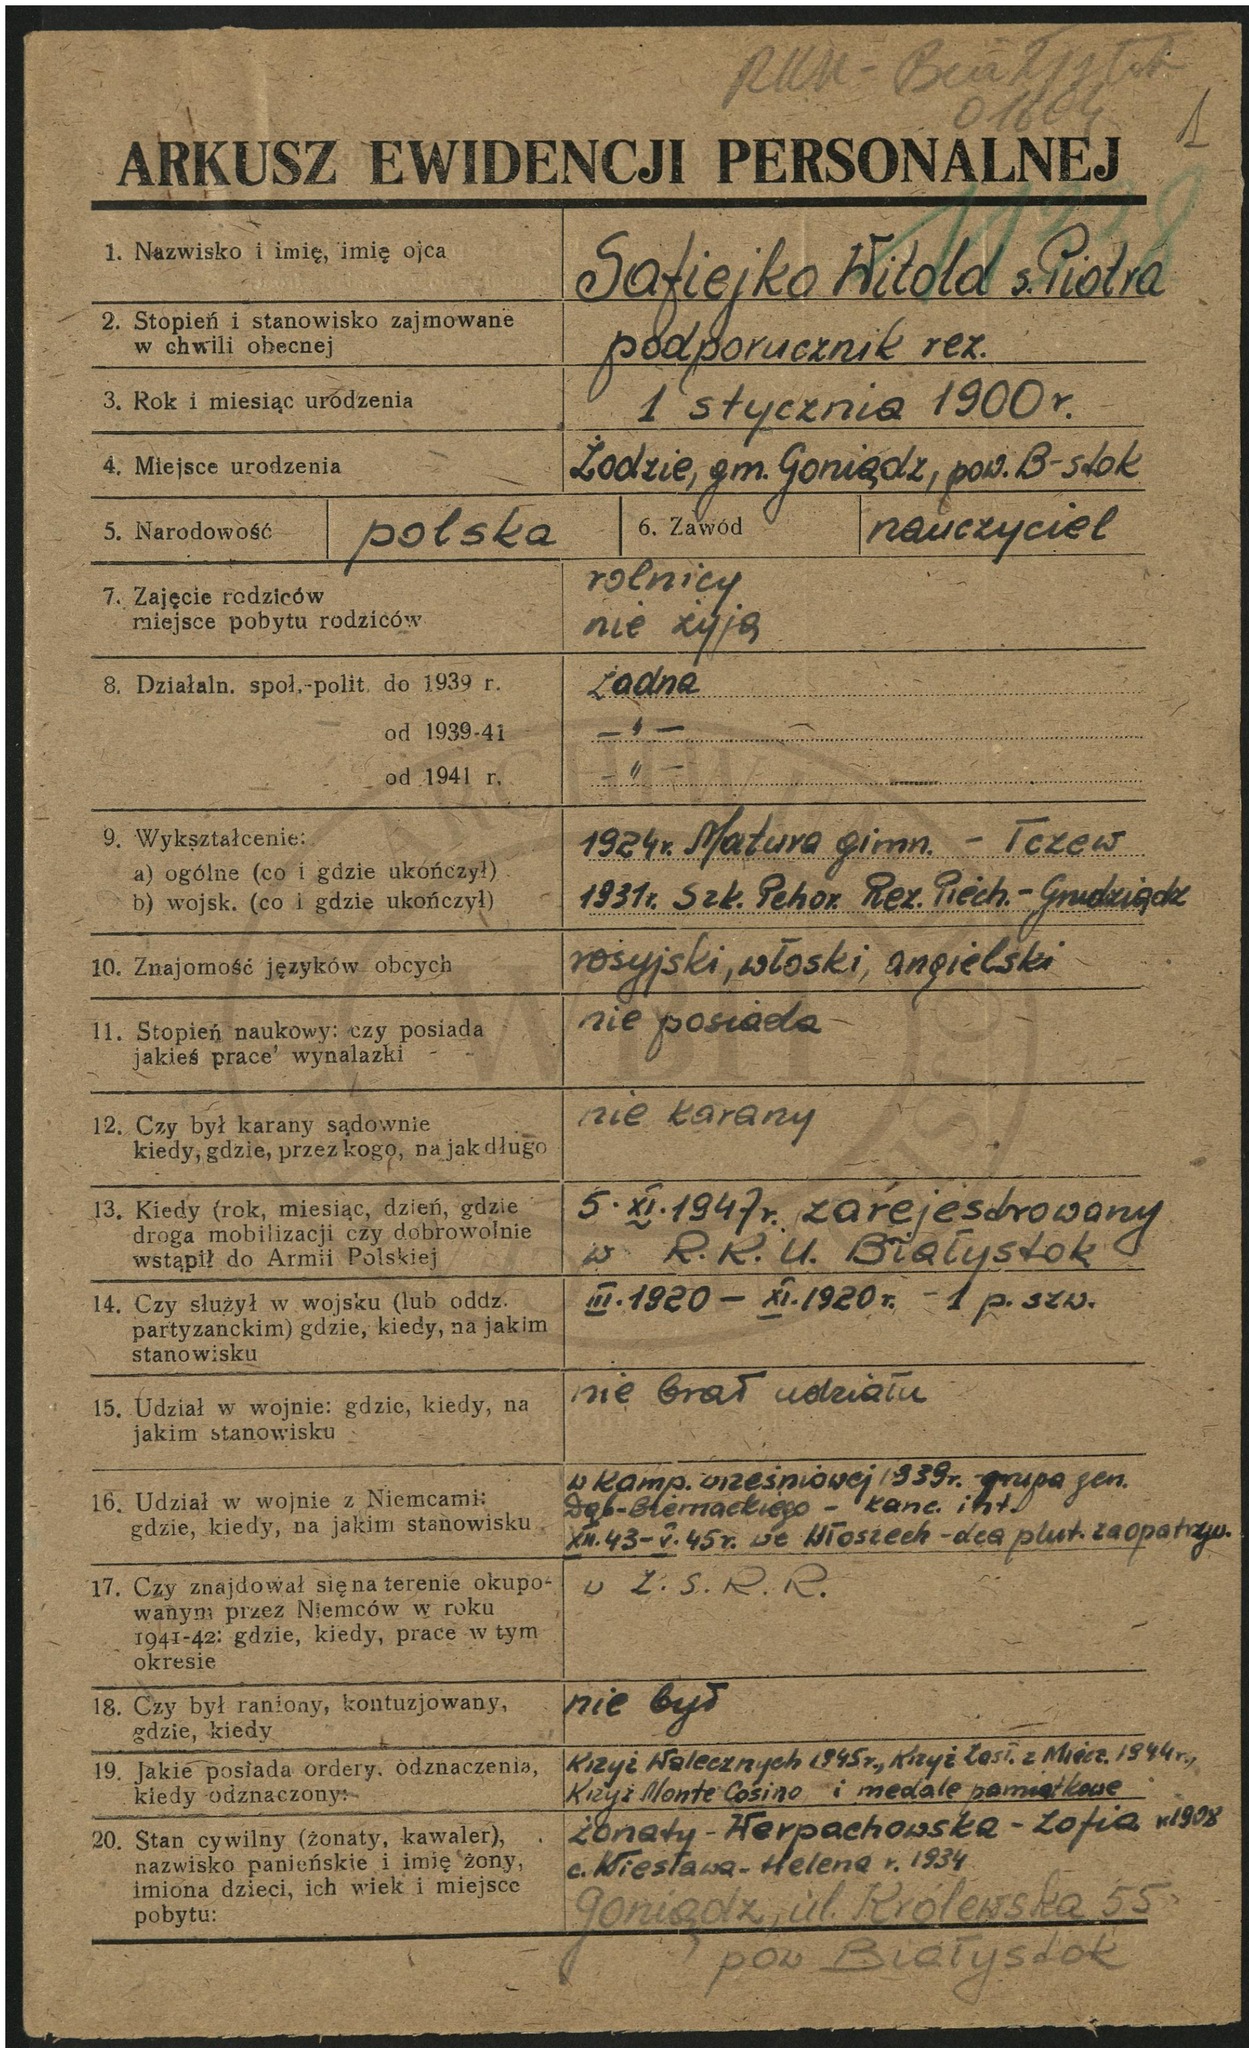 RKU - Białystok
01604
1
ARKUSZ EWIDENCJI PERSONALNEJ
1. Nazwisko i imię, imię ojca
Safiejko Witold s. Piotra
2. Stopień i stanowisko zajmowane
w chwili obecnej
podporucznik rez.
3. Rok i miesiąc urodzenia
1 stycznia 1900 r.
4. Miejsce urodzenia
Łodzie, gm. Goniądz, pow. B-stok
5. Narodowość polska 6. Zawód nauczyciel
7. Zajęcie rodziców
miejsce pobytu rodziców
rolnicy
nie żyją
8. Działaln. społ.-polit. do 1939 r. żadna
od 1939-41 — " —
od 1941 r. — " —
9. Wykształcenie:
a) ogólne (co i gdzie ukończył)
b) wojsk. (co i gdzie ukończył)
1924r. Matura gimn. - Tczew
1931r. Szk. Pchor. Rez. Piech. - Grudziądz
10. Znajomość języków obcych
rosyjski, włoski, angielski
11. Stopień naukowy: czy posiada
jakieś prace' wynalazki
nie posiada
12. Czy był karany sądownie
kiedy, gdzie, przez kogo, na jak długo
nie karany
13. Kiedy (rok, miesiąc, dzień, gdzie
droga mobilizacji czy dobrowolnie
wstąpił do Armii Polskiej
5.XI.1947r. zarejestrowany
w R.K.U. Białystok
14. Czy służył w wojsku (lub oddz.
partyzanckim) gdzie, kiedy, na jakim
stanowisku
III.1920 - XI.1920r. - 1 p. szw.
15. Udział w wojnie: gdzie, kiedy, na
jakim stanowisku
nie brał udziału
16. Udział w wojnie z Niemcami:
gdzie, kiedy, na jakim stanowisku
w kamp. wrześniowej 1939r. grupa gen.
Dąb-Biernackiego - kanc. int.
XII.43-V.45r. we Włoszech - dca plut. zaopatrzw.
17. Czy znajdował się na terenie okupo-
wanym przez Niemców w roku
1941-42: gdzie, kiedy, prace w tym
okresie
w Z.S.R.R.
18. Czy był raniony, kontuzjowany,
gdzie, kiedy
nie był
19. Jakie posiada ordery, odznaczenia,
kiedy odznaczony:
Krzyż Walecznych 1945r., Krzyż Zasł. z Miecz. 1944r.,
Krzyż Monte Cosino i medale pamiątkowe
20. Stan cywilny (żonaty, kawaler),
nazwisko panieńskie i imię żony,
imiona dzieci, ich wiek i miejsce
pobytu:
żonaty - Werpachowska - Zofia r.1908
c. Wiesława-Helena r. 1934
Goniądz, ul. Królewska 55
pow Białystok